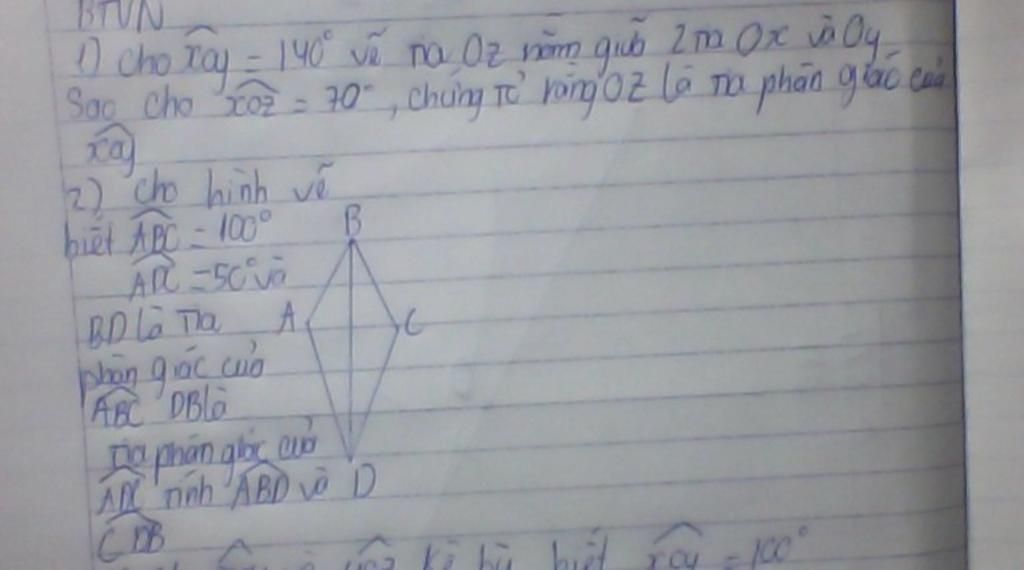 BTVN
1) cho xOy = 140° vẽ tia Oz nằm giữa 2 tia Ox và Oy
Sao cho xOz = 70°, chứng tỏ rằng Oz là tia phân giác của
xOy
2) cho hình vẽ
biết ABC = 100°
ADC = 50° và
BD là tia
phân giác của
ABC DB là
tia phân giác của
ADC tính ABD và
CDB
B
A
C
D
kề bù biết xOy = 100°